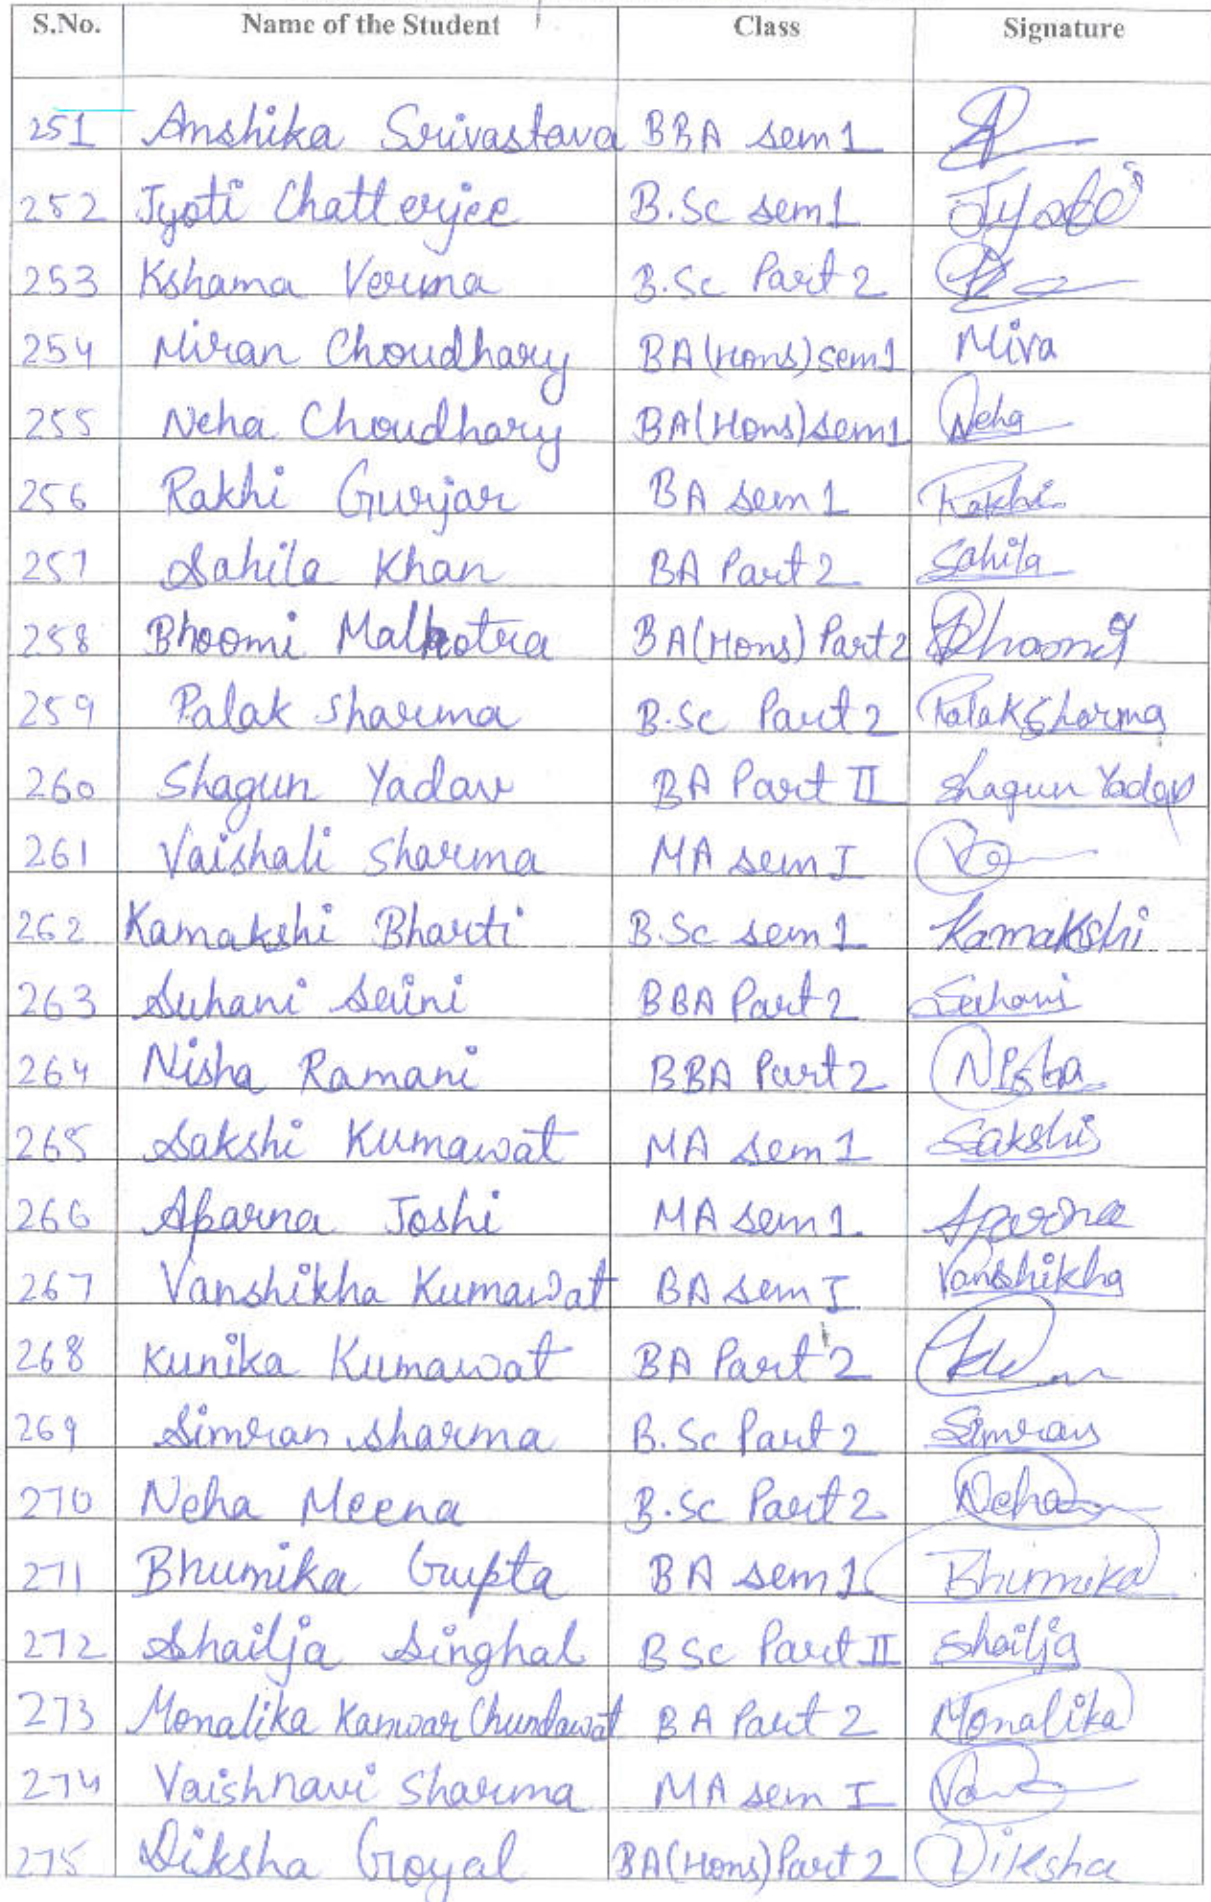 S.No. Name of the Student Class Signature
251 Anshika Srivastava BBA sem 1
252 Jyoti Chatterjee B.Sc sem 1 Jyoti
253 Kshama Verma B.Sc Part 2
254 Miran Choudhary BA(Hons) sem 1 Miva
255 Neha Choudhary BA(Hons) sem 1 Neha
256 Rakhi Gurjar BA sem 1 Rakhi
257 Sahila Khan BA Part 2 Sahila
258 Bhoomi Malhotra BA(Hons) Part 2 Bhoomi
259 Palak Sharma B.Sc Part 2 Palak Sharma
260 Shagun Yadav BA Part II Shagun Yadav
261 Vaishali Sharma MA sem I
262 Kamakshi Bharti B.Sc sem 1 Kamakshi
263 Suhani Saini BBA Part 2 Suhani
264 Nisha Ramani BBA Part 2 Nisha
265 Sakshi Kumawat MA sem 1 Sakshi
266 Aparna Joshi MA sem 1 Aparna
267 Vanshikha Kumawat BA sem I Vanshikha
268 Kunika Kumawat BA Part 2
269 Simran Sharma B.Sc Part 2 Simran
270 Neha Meena B.Sc Part 2 Neha
271 Bhumika Gupta BA sem 1 Bhumika
272 Shailja Singhal BSc Part II Shailja
273 Monalika Kanwar Chundawat BA Part 2 Monalika
274 Vaishnavi Sharma MA sem I
275 Diksha Goyal BA(Hons) Part 2 Diksha